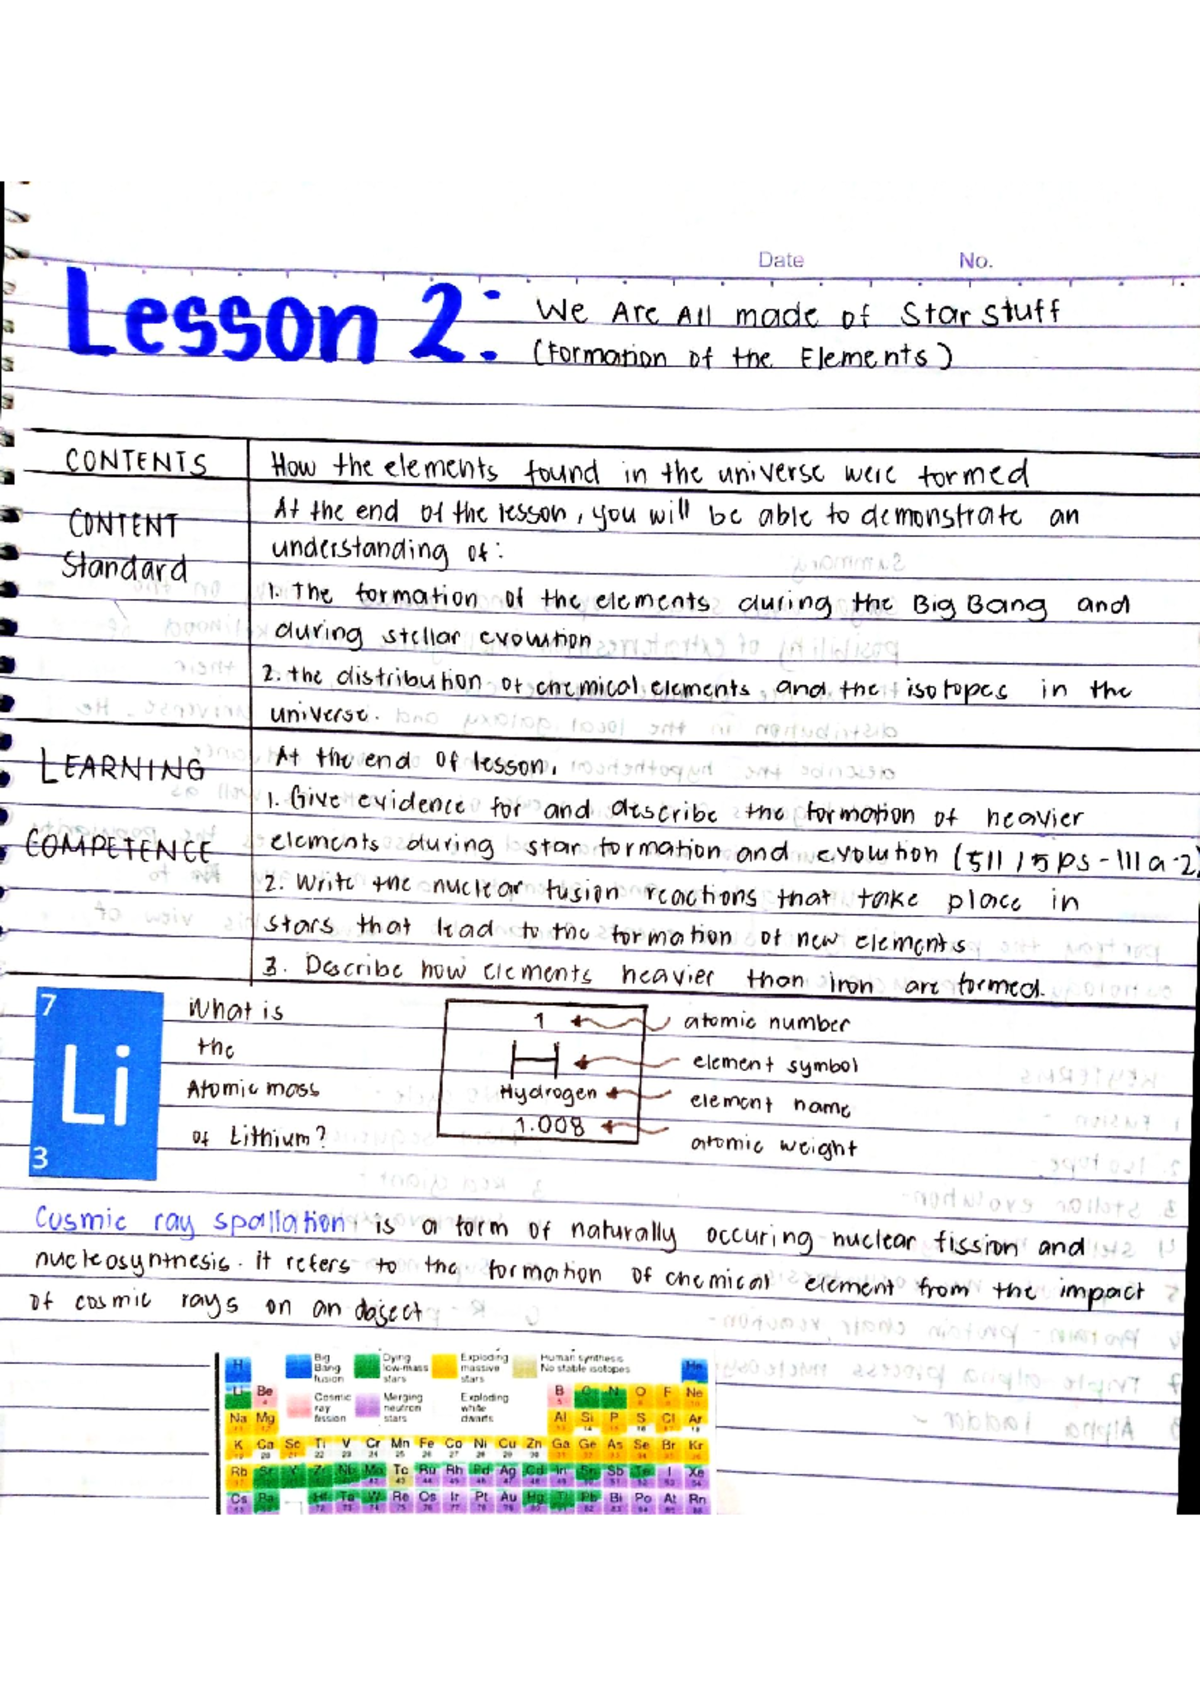 Date No.
Lesson 2: We Are All made of Star stuff
(Formation of the Elements)
CONTENTS How the elements found in the universe were formed
CONTENT Standard At the end of the lesson, you will be able to demonstrate an
understanding of:
1. The formation of the elements during the Big Bang and
during stellar evolution
2. the distribution of chemical elements and the isotopes in the
universe.
LEARNING COMPETENCE At the end of lesson,
1. Give evidence for and describe the formation of heavier
elements during star formation and evolution (S11 / 5 ps - 111 a - 2)
2. Write the nuclear fusion reactions that take place in
stars that lead to the formation of new elements
3. Describe how elements heavier than iron are formed.
7
Li
3
What is
the
Atomic mass
of Lithium?
1 atomic number
H element symbol
Hydrogen element name
1.008 atomic weight
Cosmic ray spallation is a form of naturally occuring nuclear fission and
nucleosynthesis. it refers to the formation of chemical element from the impact
of cosmic rays on an object
Big Bang fusion
Dying low-mass stars
Exploding massive stars
Human synthesis
No stable isotopes
Cosmic ray fission
Merging neutron stars
Exploding white dwarfs
H He
Li Be B C N O F Ne
Na Mg Al Si P S Cl Ar
K Ca Sc Ti V Cr Mn Fe Co Ni Cu Zn Ga Ge As Se Br Kr
Rb Sr Y Zr Nb Mo Tc Ru Rh Pd Ag Cd In Sn Sb Te I Xe
Cs Ba Hf Ta W Re Os Ir Pt Au Hg Tl Pb Bi Po At Rn